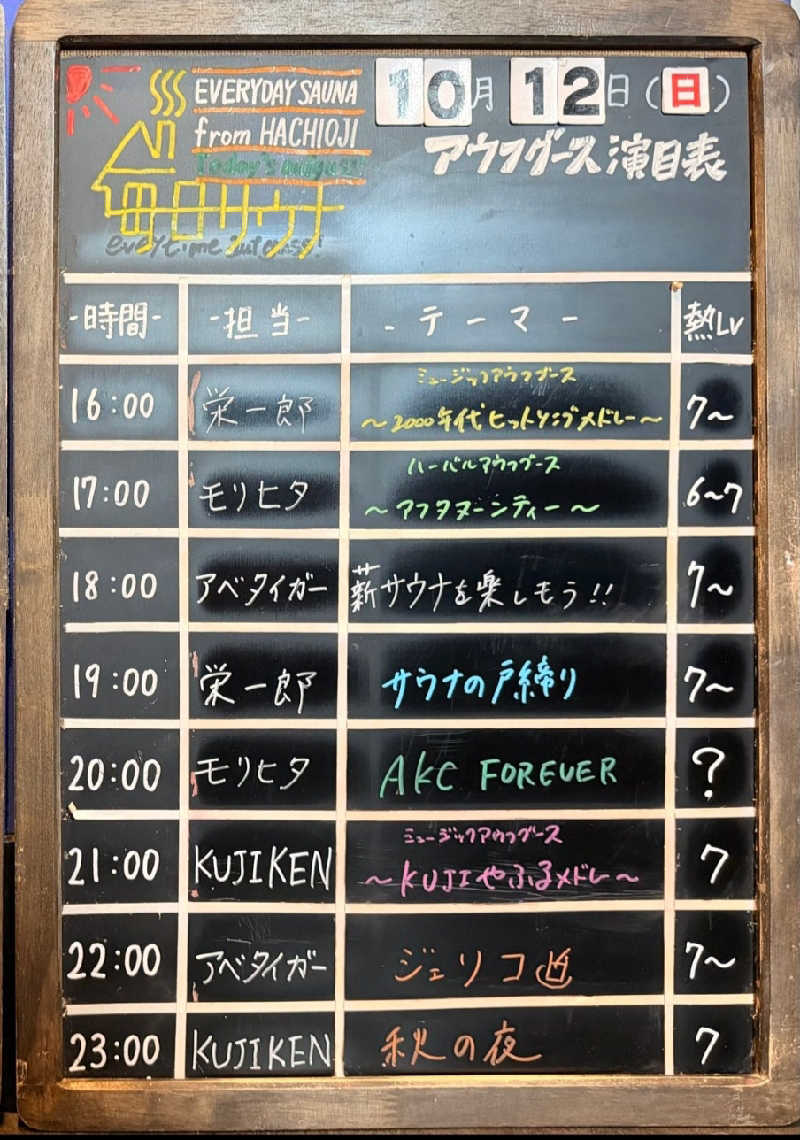 EVERYDAY SAUNA
from HACHIOJI
Today's aufguss!
サウナ
everytime
10月12日(日)
アウフグース演目表
-時間- -担当- -テーマー 熱LV
16:00 栄一郎 ミュージックアウフグース 7〜
〜2000年代ヒットソングメドレー〜
17:00 モリヒタ ハーバルアウフグース 6〜7
〜アフタヌーンティー〜
18:00 アベタイガー 薪サウナを楽しもう!! 7〜
19:00 栄一郎 サウナの戸締り 7〜
20:00 モリヒタ AKC FOREVER ?
21:00 KUJIKEN ミュージックアウフグース 7
〜KUJIやふるメドレー〜
22:00 アベタイガー ジェリコ 7〜
23:00 KUJIKEN 秋の夜 7